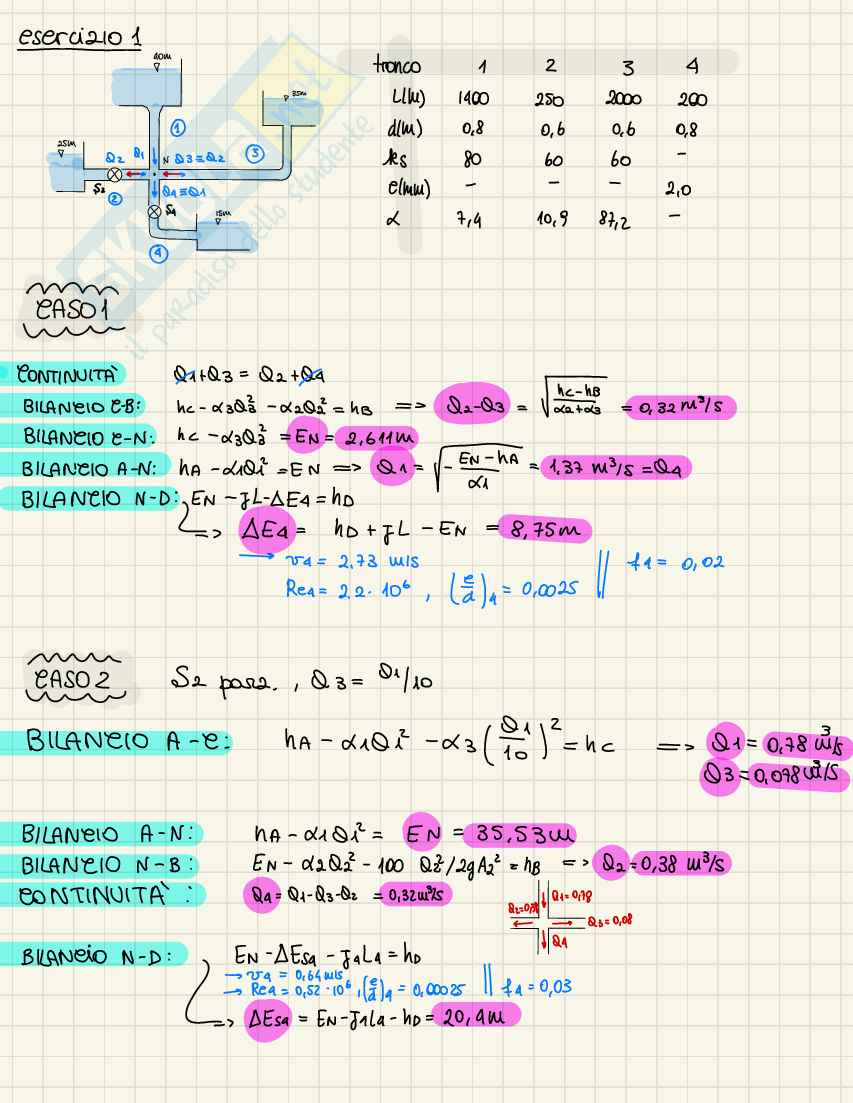 esercizio 1
40m
35m
25m
15m
Q2 Q1 N Q3≡Q2
Q4≡Q1
S2 S4
1 2 3 4
SKUOLA.net
il paradiso dello studente
tronco 1 2 3 4
L(m) 1400 250 2000 200
d(m) 0,8 0,6 0,6 0,8
ks 80 60 60 -
e(mm) - - - 2,0
α 7,4 10,9 87,2 -
CASO 1
CONTINUITÀ Q1+Q3 = Q2+Q4
BILANCIO C-B: hC - α3Q3² - α2Q2² = hB => Q2-Q3 = √((hC-hB)/(α2+α3)) = 0,32 m³/s
BILANCIO C-N: hC - α3Q3² = EN = 2,611m
BILANCIO A-N: hA - α1Q1² = EN => Q1 = √(-(EN-hA)/α1) = 1,37 m³/s = Q4
BILANCIO N-D: EN - JL - ΔE4 = hD
=> ΔE4 = hD + JL - EN = 8,75m
→ v4 = 2,73 m/s || f4 = 0,02
Re4 = 2,2·10⁶, (e/d)4 = 0,0025
CASO 2 S2 parz., Q3 = Q1/10
BILANCIO A-C: hA - α1Q1² - α3(Q1/10)² = hC => Q1 = 0,78 m³/s
Q3 = 0,078 m³/s
BILANCIO A-N: hA - α1Q1² = EN = 35,53m
BILANCIO N-B: EN - α2Q2² - 100 Q2²/2gA2² = hB => Q2 = 0,38 m³/s
CONTINUITÀ: Q4 = Q1-Q3-Q2 = 0,32m³/s
Q1=0,78
Q2=0,38
Q3=0,08
Q4
BILANCIO N-D: EN - ΔES4 - J4L4 = hD
→ v4 = 0,64 m/s
→ Re4 = 0,52·10⁶, (e/d)4 = 0,00025 || f4 = 0,03
=> ΔES4 = EN - J4L4 - hD = 20,4m